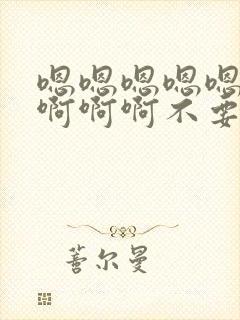 嗯嗯嗯嗯嗯
啊啊啊不要
善尔曼